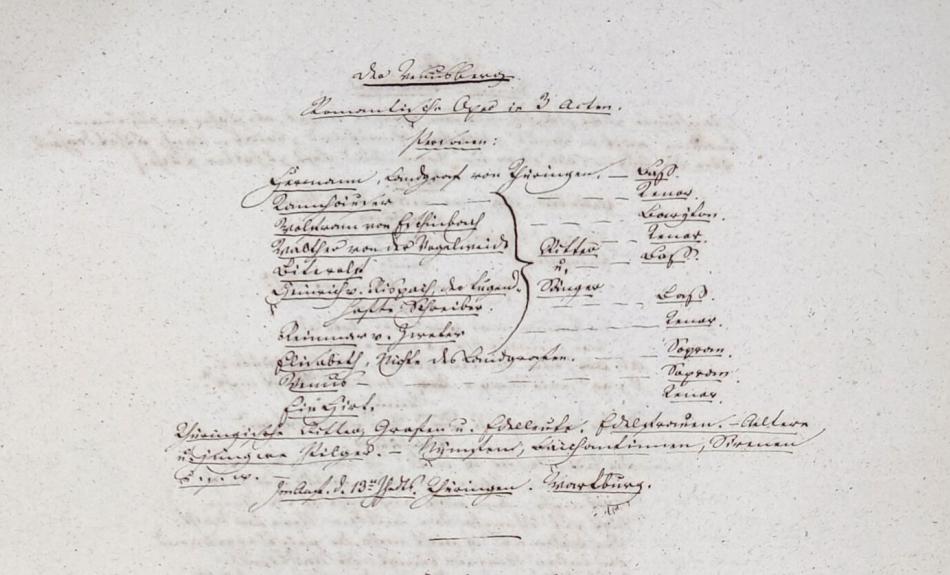 Der Venusberg.
Romantische Oper in 3 Acten.
Personen:
Hermann, Landgraf von Thüringen. — Bass.
Tannhäuser — — Tenor.
Wolfram von Eschinbach — — — Baryton.
Walther von der Vogelweide — — — Tenor.
Biterolf — — Bass.
Ritter
u.
Sänger
Heinrich v. Rispach, der tugend-
hafte Schreiber. — — — Bass.
Reinmar v. Zweter — — — Tenor.
Elisabeth, Nichte des Landgrafen. — — Sopran.
Venus — — — — Sopran.
Ein Hirt. Tenor.
Thüringische Ritter, Grafen u. Edelleute. Edelfrauen. — Aeltere
u. jüngere Pilger. — Nymphen, Bacchantinnen, Sirenen
u.s.w. —
Im Anf. d. 13ten Jhdts. Thüringen. Wartburg.